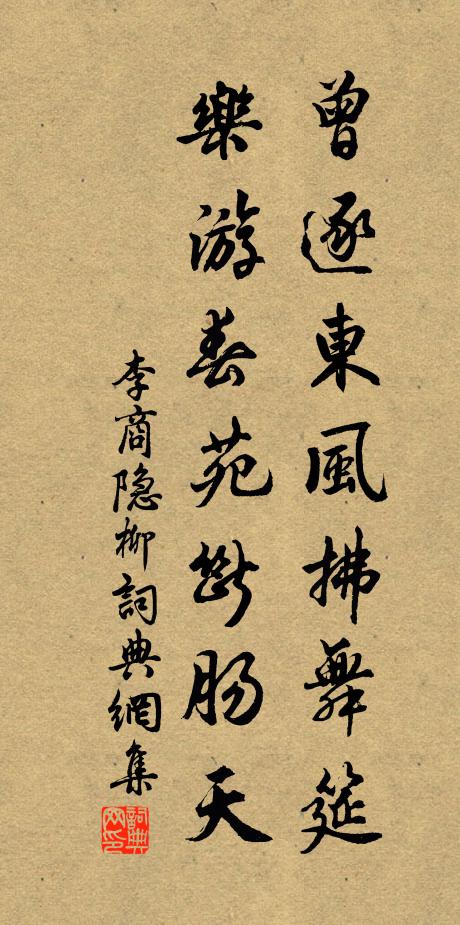 曾逐東風拂舞筵
樂游春苑斷肠天
李商隐柳詞典網集
詞典网印